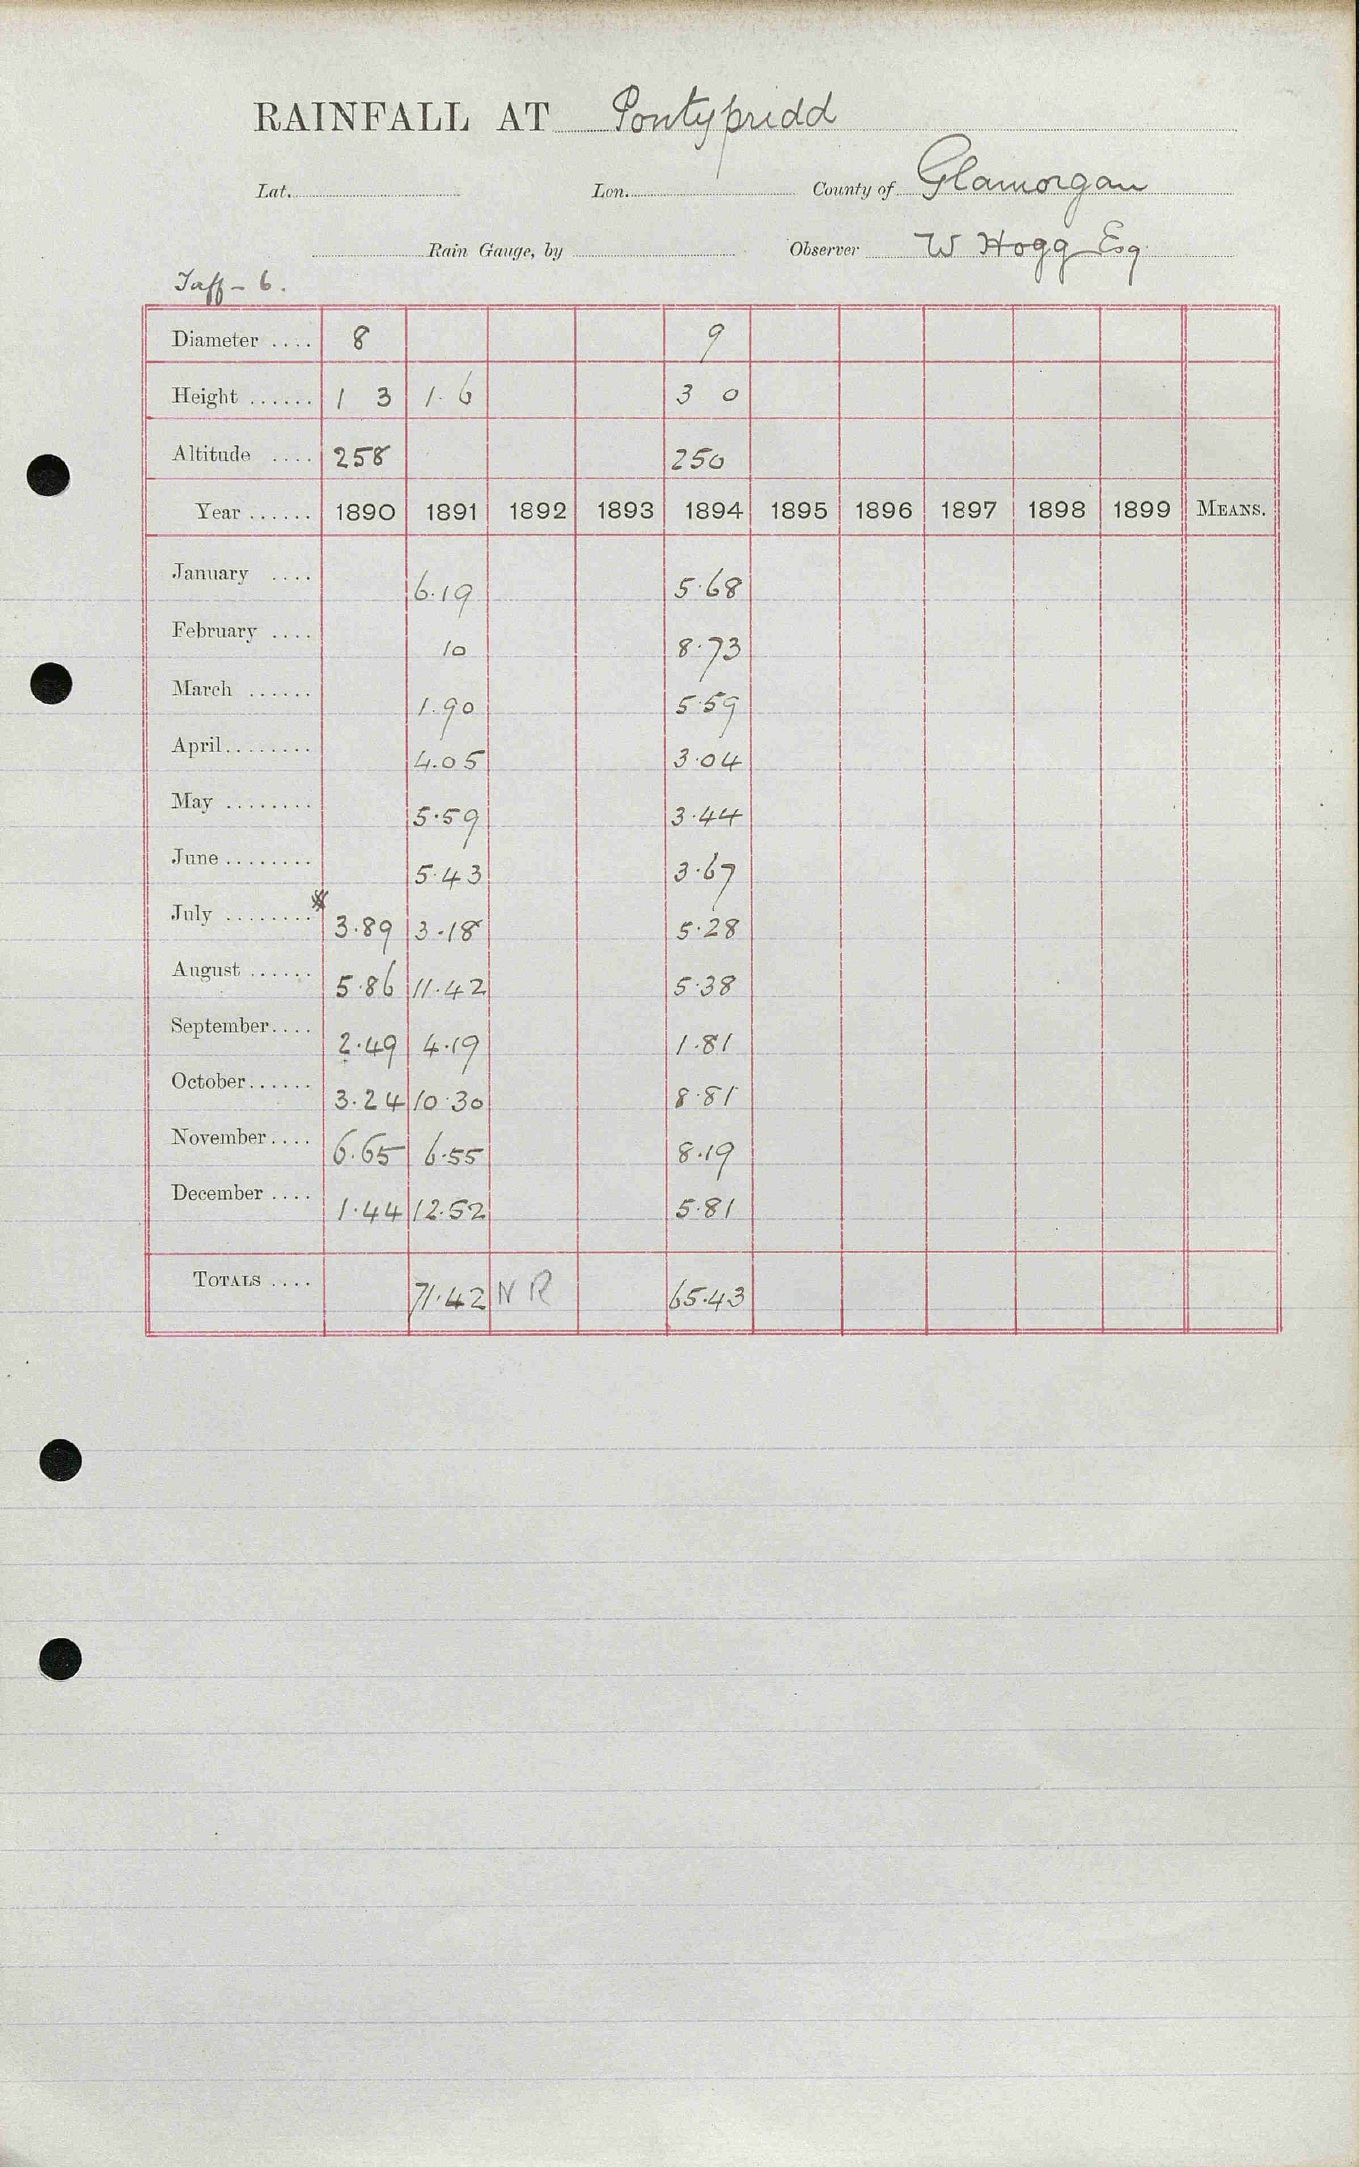 RAINFALL AT Pontypridd
Lat. Lon. County of Glamorgan
Rain Gauge, by Observer W Hogg Esq
Taff - 6.
Diameter .... 8 9
Height ...... 1 3 1. 6 3 0
Altitude .... 258 250
Year ...... 1890 1891 1892 1893 1894 1895 1896 1897 1898 1899 MEANS.
January .... 6.19 5.68
February .... 10 8.73
March ...... 1.90 5.59
April........ 4.05 3.04
May ........ 5.59 3.44
June ........ 5.43 3.67
July ........ * 3.89 3.18 5.28
August ...... 5.86 11.42 5.38
September.... 2.49 4.19 1.81
October...... 3.24 10.30 8.81
November.... 6.65 6.55 8.19
December .... 1.44 12.52 5.81
TOTALS .... 71.42 N R 65.43